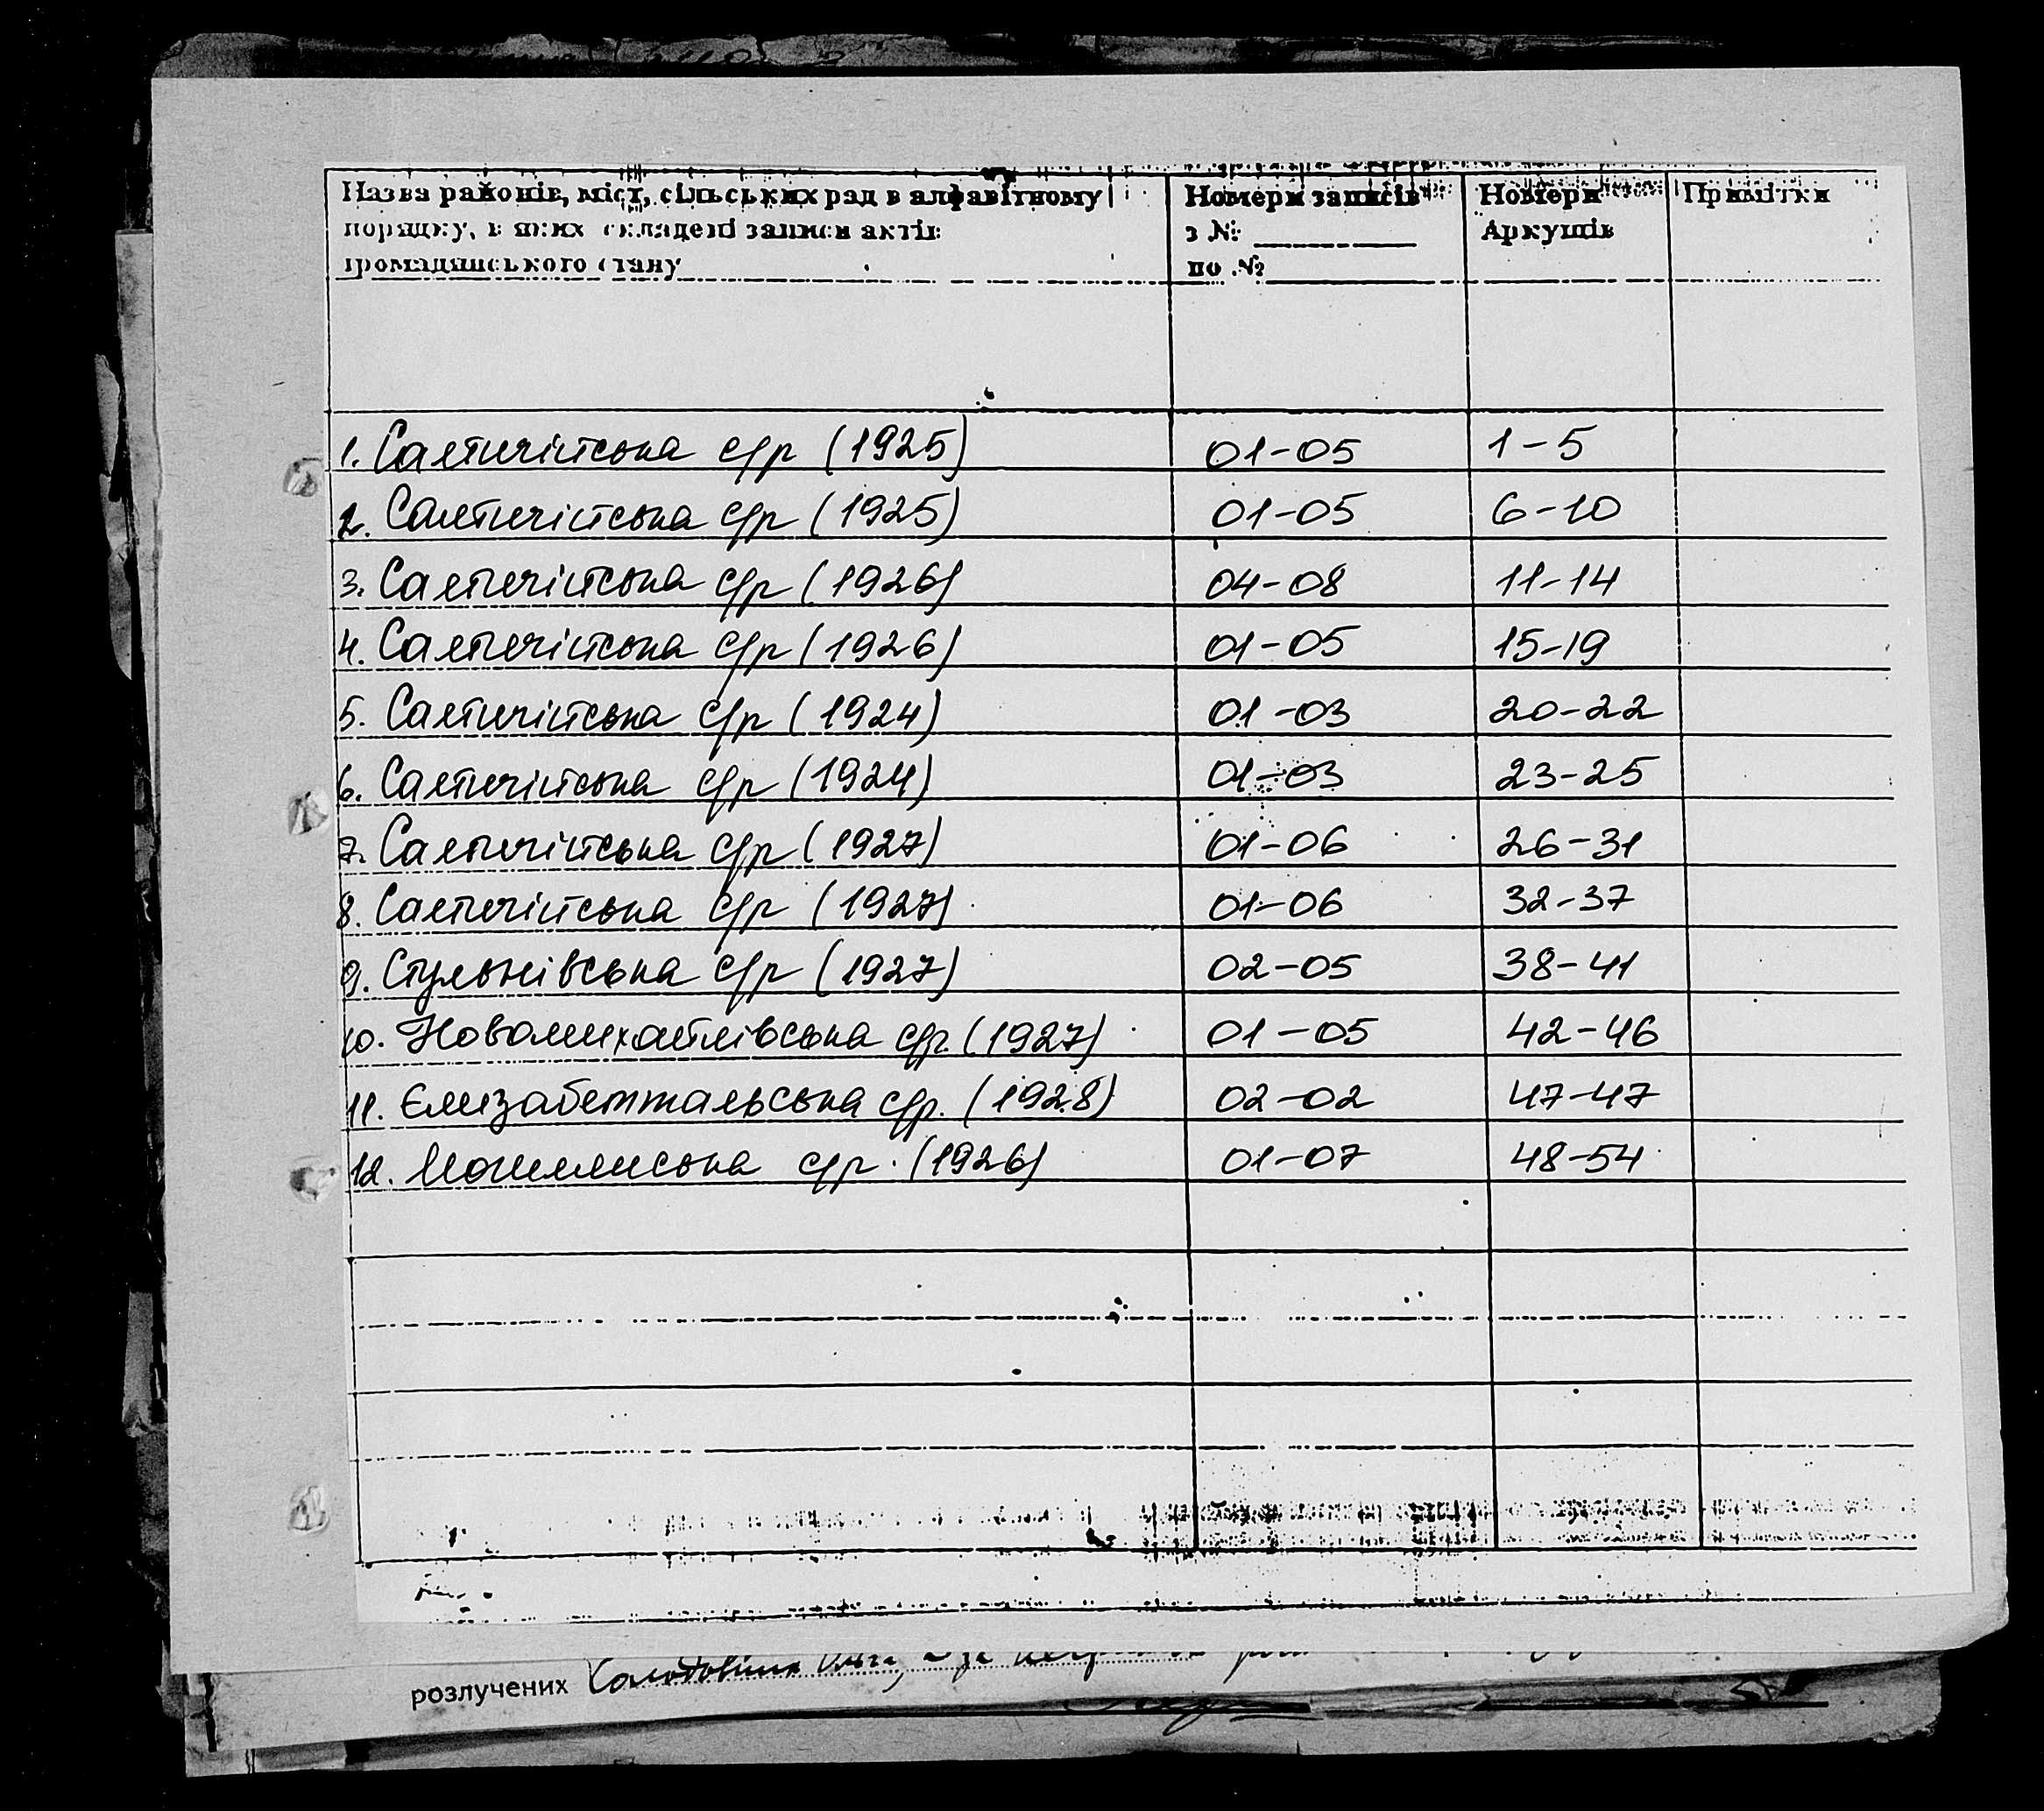 Назва районів, міст, сільських рад в алфавітному
порядку, в яких складені записи актів
громадянського стану
Номери записів
з №
по №
Номери
Аркушів
Примітки
1. Салтичійська с/р (1925) 01-05 1-5
2. Салтичійська с/р (1925) 01-05 6-10
3. Салтичійська с/р (1926) 04-08 11-14
4. Салтичійська с/р (1926) 01-05 15-19
5. Салтичійська с/р (1924) 01-03 20-22
6. Салтичійська с/р (1924) 01-03 23-25
7. Салтичійська с/р (1927) 01-06 26-31
8. Салтичійська с/р (1927) 01-06 32-37
9. Стульнівська с/р (1927) 02-05 38-41
10. Новомихайлівська с/р. (1927) 01-05 42-46
11. Єлизабеттальська с/р. (1928) 02-02 47-47
12. с/р. (1926) 01-07 48-54
розлучених